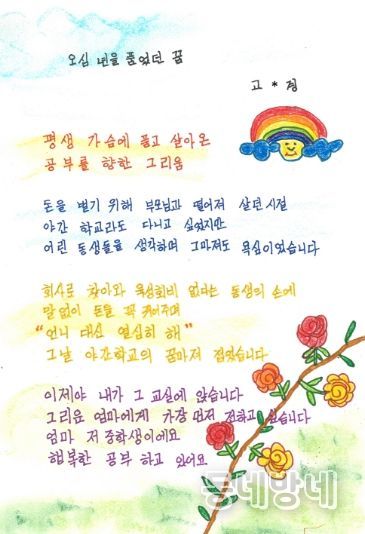 오십 년을 품었던 꿈
고 * 정
평생 가슴에 품고 살아온
공부를 향한 그리움
돈을 벌기 위해 부모님과 떨어져 살던 시절
야간 학교라도 다니고 싶었지만
어린 동생들을 생각하며 그마저도 욕심이었습니다
회사로 찾아와 육성회비 없다는 동생의 손에
말없이 돈을 꼭 쥐어주며
"언니 대신 열심히 해"
그날 야간학교의 꿈마져 접었습니다
이제야 내가 그 교실에 앉습니다
그리운 엄마에게 가장 먼저 전하고 싶습니다
엄마 저 중학생이에요
행복한 공부 하고 있어요.
동네방네